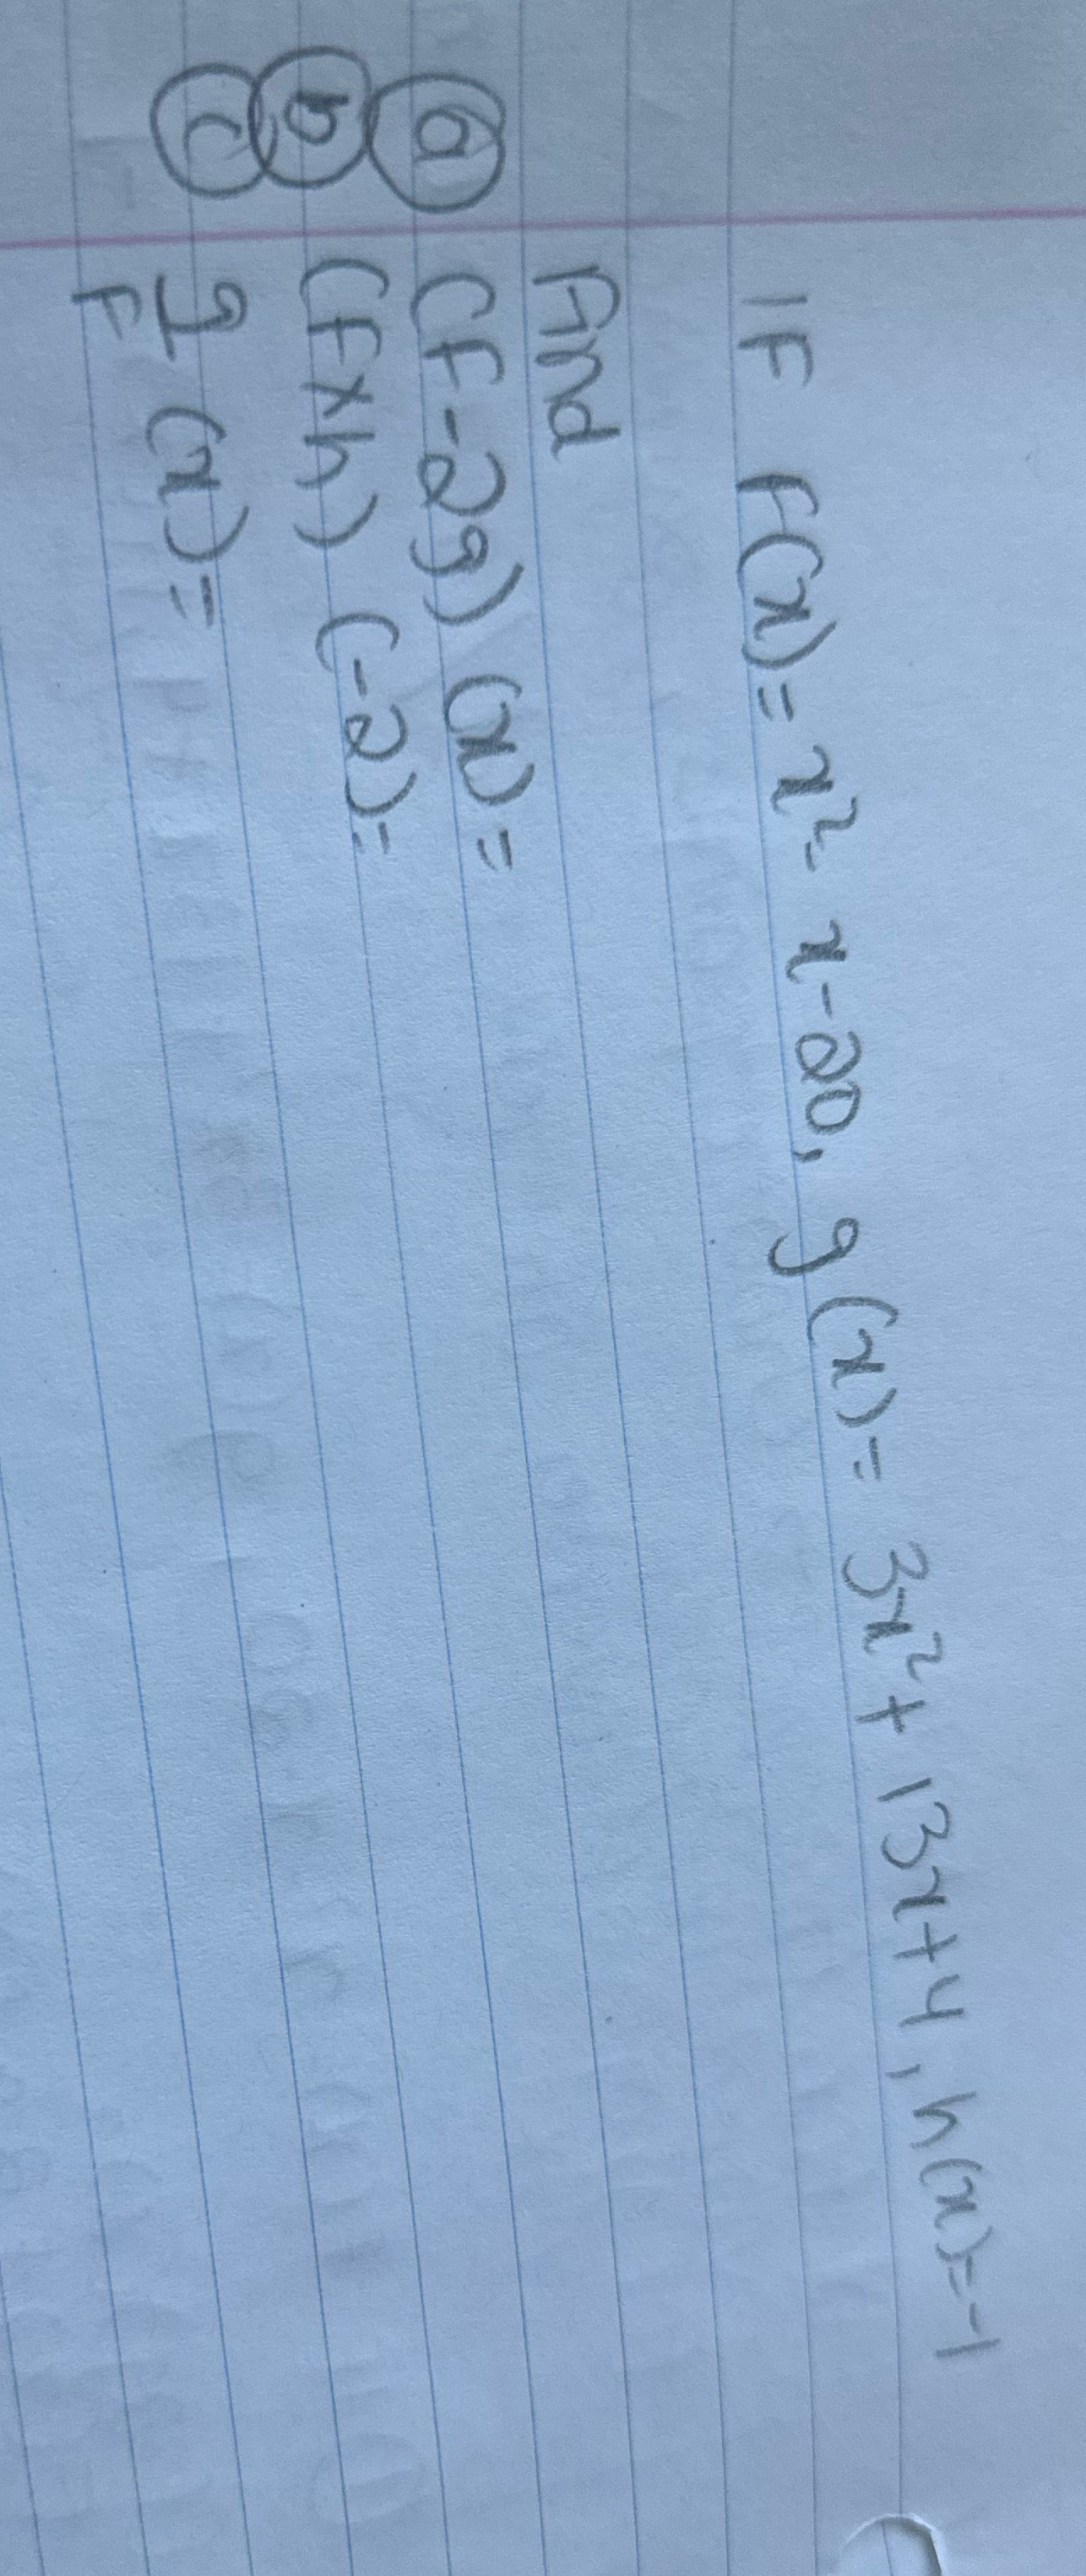 IF F(x) = x² - x - 20, g(x) = 3x² + 13x + 4, h(x) = -1
Find
a (F - 2g) (x) =
b (F x h) (-2) =
c g/F (x) =